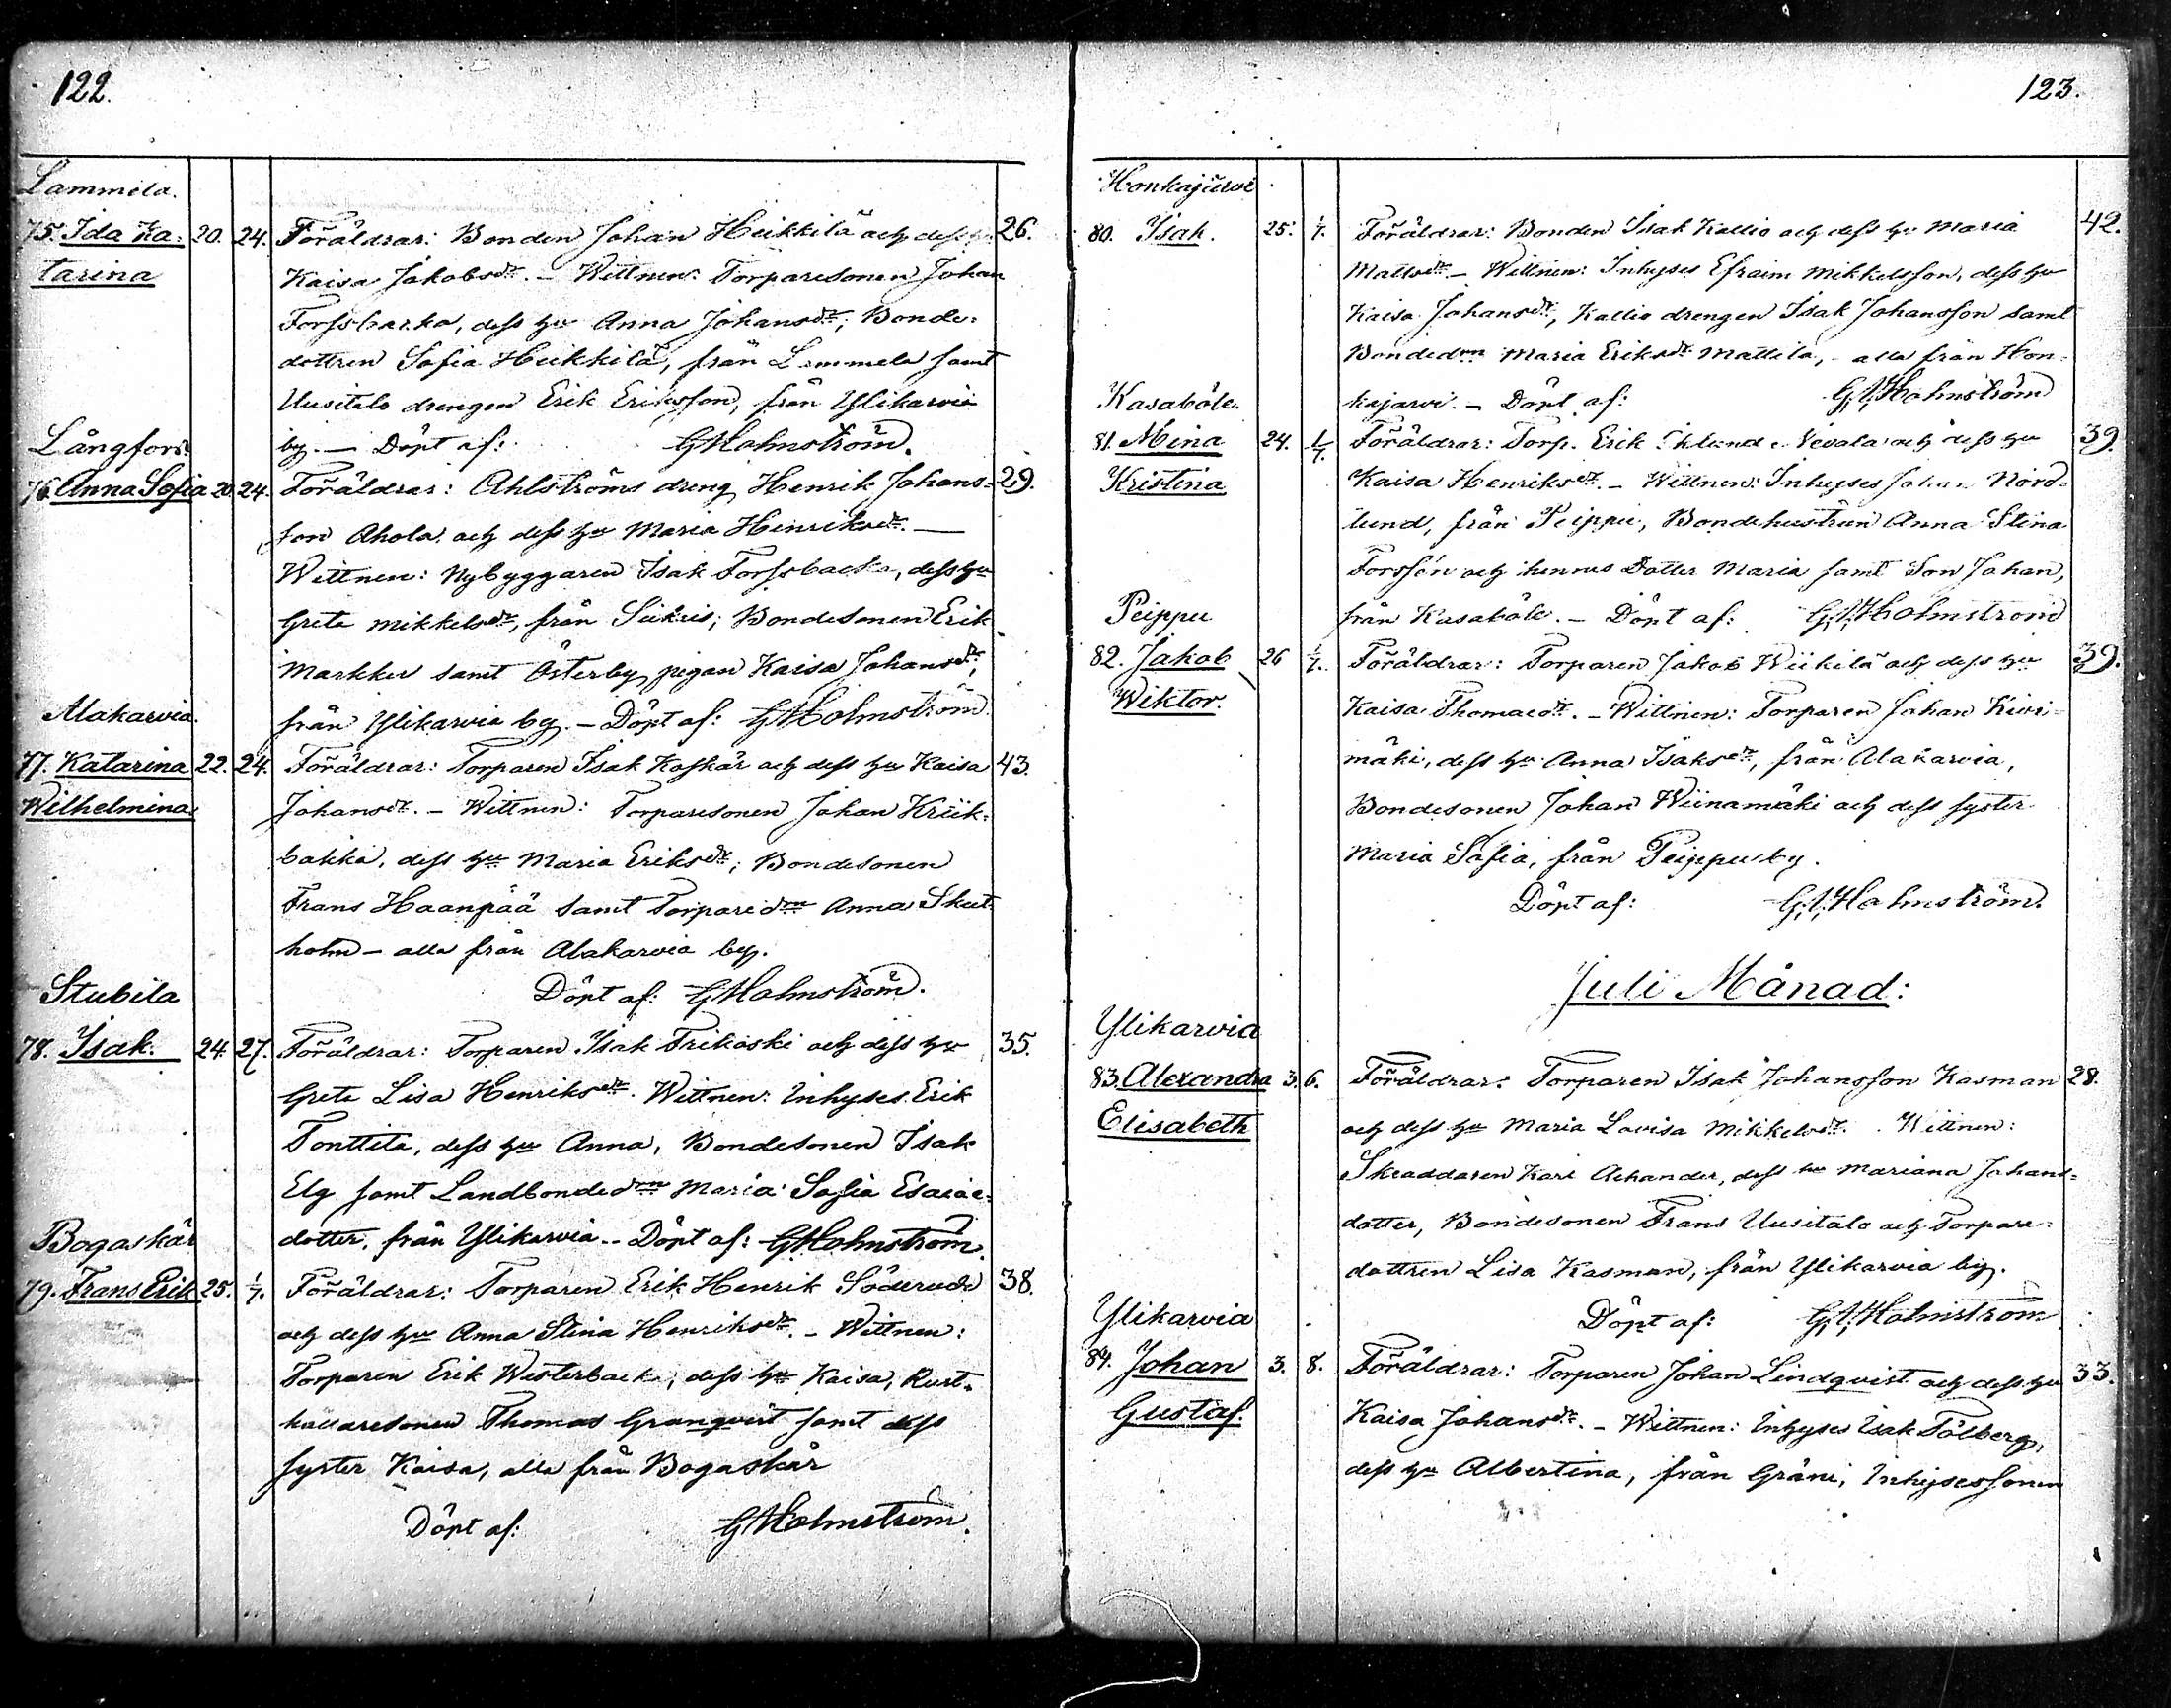 122.
Lammela.
75. Ida Ka- 20. 24. Föräldrar: Bonden Johan Heikkilä och dess hu 26.
tarina Kaisa Jakobsdr. – Wittnen: Torparesonen Johan
Forssbacka, dess hu Anna Johansdr, Bonde-
dottren Sofia Heikkilä, från Lammela samt
Uusitalo drengen Erik Eriksson, från Ylikarvia
Långfors. by. – Döpt af: GHolmström.
76. Anna Sofia 20. 24. Föräldrar: Ahlströms dreng Henrik Johans- 29.
son Ahola och dess hu Maria Henriksdr. –
Wittnen: Nybyggaren Isak Forssbacka, dess hu
Greta Mikkelsdr, från Siikeis; Bondesonen Erik
Markku samt Österby pigan Kaisa Johansdr,
Alakarvia. från Ylikarvia by. – Döpt af: GHolmström
77. Katarina 22. 24. Föräldrar: Torparen Isak Koskär och dess hu Kaisa 43.
Wilhelmina Johansdr. – Wittnen: Torparesonen Johan Kriik-
bakka, dess hu Maria Eriksdr; Bondesonen
Frans Haanpää samt Torparedrn Anna Skut-
holm – alla från Alakarvia by.
Stubila Döpt af: GHolmström.
78. Isak. 24. 27. Föräldrar: Torparen Isak Frikoski och dess hu 35.
Greta Lisa Henriksdr. Wittnen: Inhyses Erik
Tonttila, dess hu Anna, Bondesonen Isak
Elg samt Landbondedrn Maria Sofia Esaiae-
Bogaskär dotter, från Ylikarvia. – Döpt af: GHolmström.
79. Frans Erik 25. 1/7. Föräldrar: Torparen Erik Henrik Söderudd 38.
och dess hu Anna Stina Henriksdr. – Wittnen:
Torparen Erik Westerbacka, dess hu Kaisa, Rust-
hållaresonen Thomas Granqvist samt dess
syster Kaisa, alla från Bogaskär
Döpt af: GHolmström.
123.
Honkajärvi
80. Isak. 25. 1/7. Föräldrar: Bonden Isak Kallio och dess hu Maria 42.
Mattsdr. – Wittnen: Inhyses Efraim Mikkelsson, dess hu
Kaisa Johansdr, Kallio drengen Isak Johansson samt
Bondedrn Maria Eriksdr Mattila, – alla från Hon-
Kasaböle. kajärvi. – Döpt af: G.A.Holmström
81. Mina 24. 1/7. Föräldrar: Torp. Erik Eklund Nevala och dess hu 39.
Kristina Kaisa Henriksdr. – Wittnen: Inhyses Johan Nord-
lund, från Peippu, Bondehustrun Anna Stina
Forssén och hennes Dotter Maria samt Son Johan,
Peippu från Kasaböle. – Döpt af: G.A.Holmström
82. Jakob 26 1/7. Föräldrar: Torparen Jakob Wiikilä och dess hu 39.
Wiktor. Kaisa Thomaedr. – Wittnen: Torparen Johan Kivi-
mäki, dess hu Anna Isaksdr, från Alakarvia,
Bondesonen Johan Wiinamäki och dess syster
Maria Sofia, från Peippu by.
Döpt af: G.A.Holmström.
Juli Månad:
Ylikarvia
83. Alexandra 3. 6. Föräldrar: Torparen Isak Johansson Kasman 28.
Elisabeth och dess hu Maria Lovisa Mikkelsdr. Wittnen:
Skraddaren Karl Achander, dess hu Mariana Johans-
dotter, Bondesonen Frans Uusitalo och Torpare-
dottren Lisa Kasman, från Ylikarvia by.
Ylikarvia Döpt af: G.A.Holmström
84. Johan 3. 8. Föräldrar: Torparen Johan Lindqvist och dess hu 33.
Gustaf. Kaisa Johansdr. – Wittnen: Inhyses Isak Tölberg,
dess hu Albertina, från Gräni, Inhysessonen